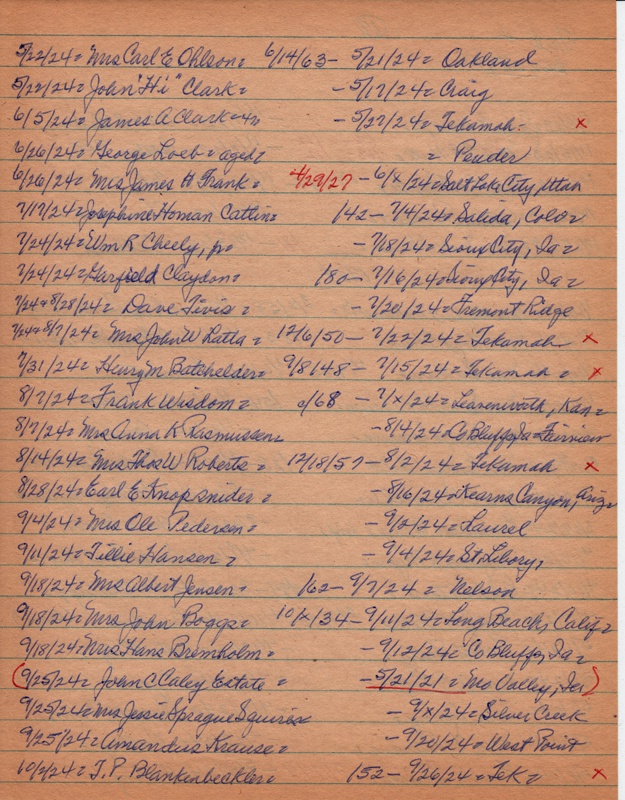 5/22/24= Mrs Carl E Ohlson= 6/14/63- 5/21/24= Oakland
5/22/24= John "Hi" Clark= -5/17/24= Craig
6/5/24= James A Clark= -5/27/24= Tekamah= x
6/26/24= George Loeb= aged= = Pender
6/26/24= Mrs James H Frank= 4/29/27 -6/x/24= Salt Lake City, Utah
7/17/24= Josephine Homan Catlin= 142- 7/4/24= Salida, Colo=
7/24/24= Wm R Cheely, jr= -7/18/24= Sioux City, Ia=
7/24/24= Garfield Claydon= 180- 7/16/24= Sioux City, Ia=
7/24= 8/28/24= Dave Tivis= -7/20/24= Fremont Ridge
7/24= 8/7/24= Mrs John W Latta= 12/6/50- 7/22/24= Tekamah x
7/31/24= Henry M Batchelder= 9/8/48- 7/15/24= Tekamah= x
8/7/24= Frank Wisdom= /68 - 7/x/24= Leavenworth, Kan=
8/7/24= Mrs Anna K Rasmussen= -8/4/24= Co Bluffs, Ia= Fairview
8/14/24= Mrs Thos W Roberts= 12/18/57- 8/2/24= Tekamah x
8/28/24= Earl E Knapsnider= -8/16/24= Kearns Canyon, Ariz=
9/4/24= Mrs Ole Pederson= -9/2/24= Laurel
9/11/24= Tillie Hansen= -9/4/24= St. Libory,
9/18/24= Mrs Albert Jensen= 162- 9/7/24= Nelson
9/18/24= Mrs John Boggs= 10/x/34- 9/11/24= Long Beach, Calif=
9/18/24= Mrs Hans Bremholm= -9/12/24= Co Bluffs, Ia=
(9/25/24= John C Caley Estate= -5/21/21= Mo Valley, Ia=)
9/25/24= Mrs Jessie Sprague Squires= -9/x/24= Silver Creek
9/25/24= Amandus Krause= -9/20/24= West Point
10/2/24= T.P. Blankenbeckler= 152- 9/26/24= Tek= x